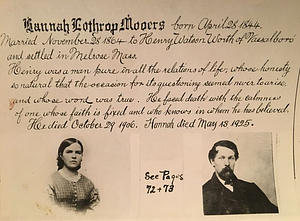 Hannah Lothrop Mooers born April 28 1844.
Married November 28 1864 to Henry Watson Worth of Vassalboro
and settled in Melrose Mass.
Henry was a man pure in all the relations of life, whose honesty
so natural that the occasion for its questioning seemed never to arise,
and whose word was true. He faced death with the calmness
of one whose faith is fixed and who knows in whom he has believed.
He died October 29 1906. Hannah died May 13 1925.
See Pages
72 + 73